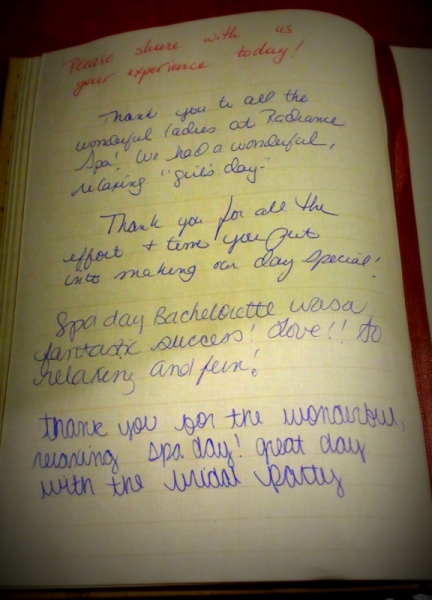 Please share with us
your experience today!
Thank you to all the
wonderful ladies at Radiance
Spa! We had a wonderful,
relaxing "girl's day."
Thank you for all the
effort + time you put
into making our day special!
Spa day Bachelorette was a
fantastic success! Love!! So
relaxing and fun!
thank you for the wonderful,
relaxing spa day! great day
with the bridal party